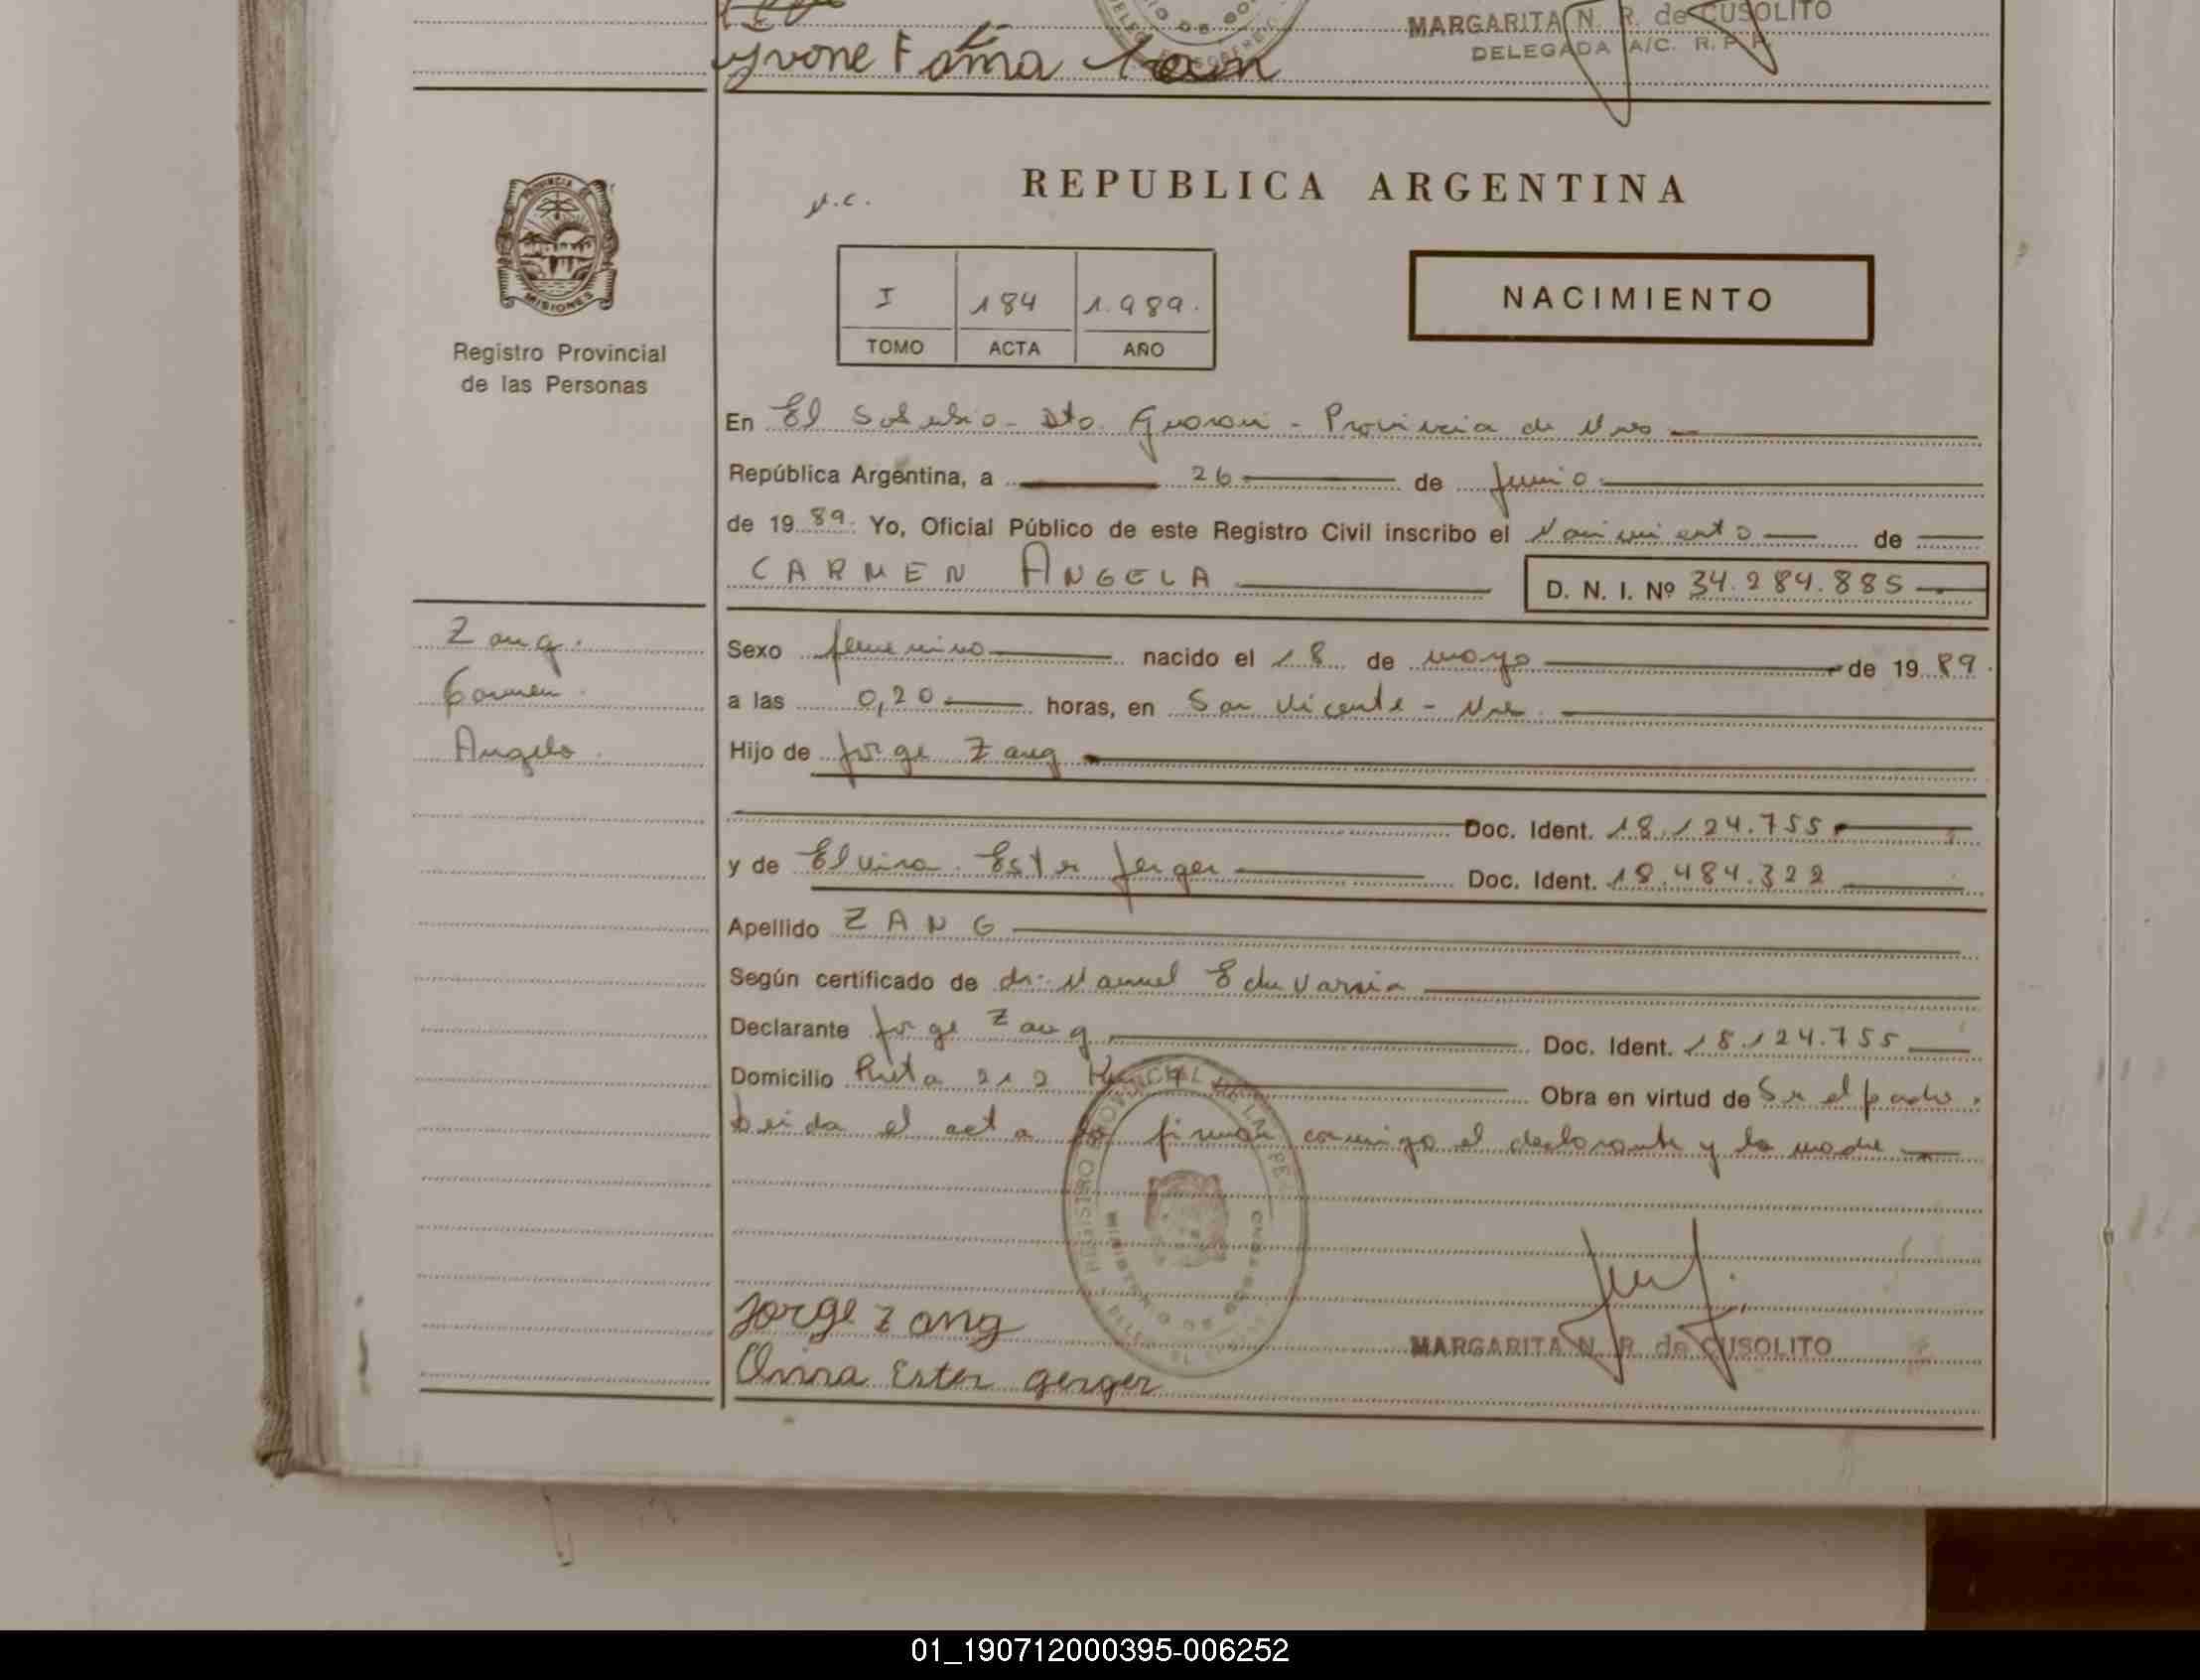 Yvone Fátima
MARGARITA N. R. de CUSOLITO
DELEGADA A/C. R. P. P.
PROVINCIA DE
MISIONES
Registro Provincial
de las Personas
REPUBLICA ARGENTINA
N.C.
I 184 1.989.
TOMO ACTA AÑO
NACIMIENTO
En El Soberbio - Dto. Guaraní - Provincia de Mnes
República Argentina, a 26 de Junio
de 1989. Yo, Oficial Público de este Registro Civil inscribo el Nacimiento de
CARMEN ANGELA D. N. I. Nº 34.284.885
Zang.
Carmen.
Angela.
Sexo femenino nacido el 18 de mayo de 1989.
a las 0,20 horas, en San Vicente - Mnes.
Hijo de Jorge Zang
Doc. Ident. 18.124.755
y de Elvira Ester Gerger Doc. Ident. 18.484.322
Apellido ZANG
Según certificado de dr. Manuel Edu
Declarante Jorge Zang Doc. Ident. 18.124.755
Domicilio Ruta 212 Obra en virtud de Ser el padre.
Leida el acta la firman conmigo el declarante y la madre
Jorge Zang
MARGARITA N. R. de CUSOLITO
Ester Gerger
01_190712000395-006252